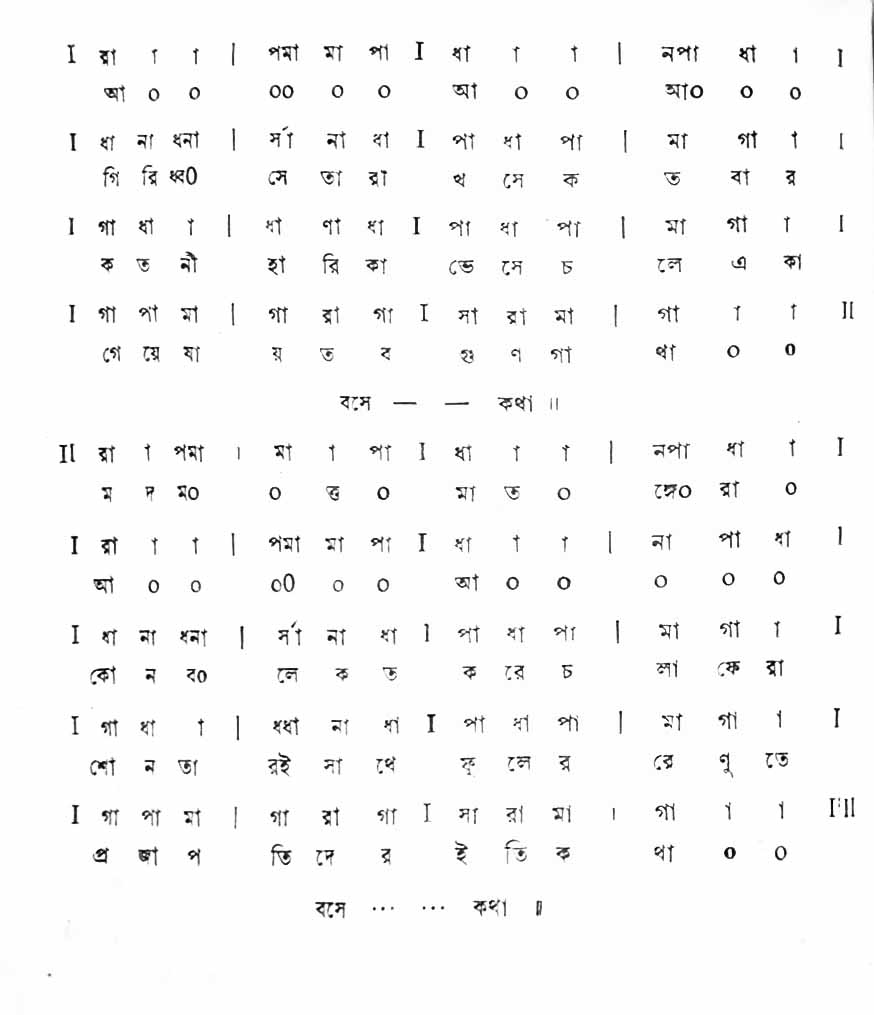 I রা া া | পমা মা পা I ধা া া | নপা ধা া I
আ ০ ০ ০০ ০ ০ আ ০ ০ আ০ ০ ০
I ধা না ধনা | র্সা না ধা I পা ধা পা | মা গা া I
গি রি ধ্ব০ সে তা রা থ সে ক ত বা র
I গা ধা া | ধা ণা ধা I পা ধা পা | মা গা া I
ক ত নী হা রি কা ভে সে চ লে এ কা
I গা পা মা | গা রা গা I সা রা মা | গা া া II
গে য়ে যা য় ত ব গু ণ গা থা ০ ০
বসে — — কথা ॥
II রা া পমা । মা া পা I ধা া া | নপা ধা া I
ম দ ম০ ০ ত্ত ০ মা ত ০ ঙ্গে০ রা ০
I রা া া | পমা মা পা I ধা া া | না পা ধা I
আ ০ ০ ০০ ০ ০ আ ০ ০ ০ ০ ০
I ধা না ধনা | র্সা না ধা I পা ধা পা | মা গা া I
কো ন ব০ লে ক ত ক রে চ লা ফে রা
I গা ধা া | ধধা না ধা I পা ধা পা | মা গা া I
শো ন তা রই সা থে ফু লে র রে ণু তে
I গা পা মা | গা রা গা I সা রা মা । গা া া I'II
প্র জা প তি দে র ই তি ক থা ০ ০
বসে ... ... কথা ॥